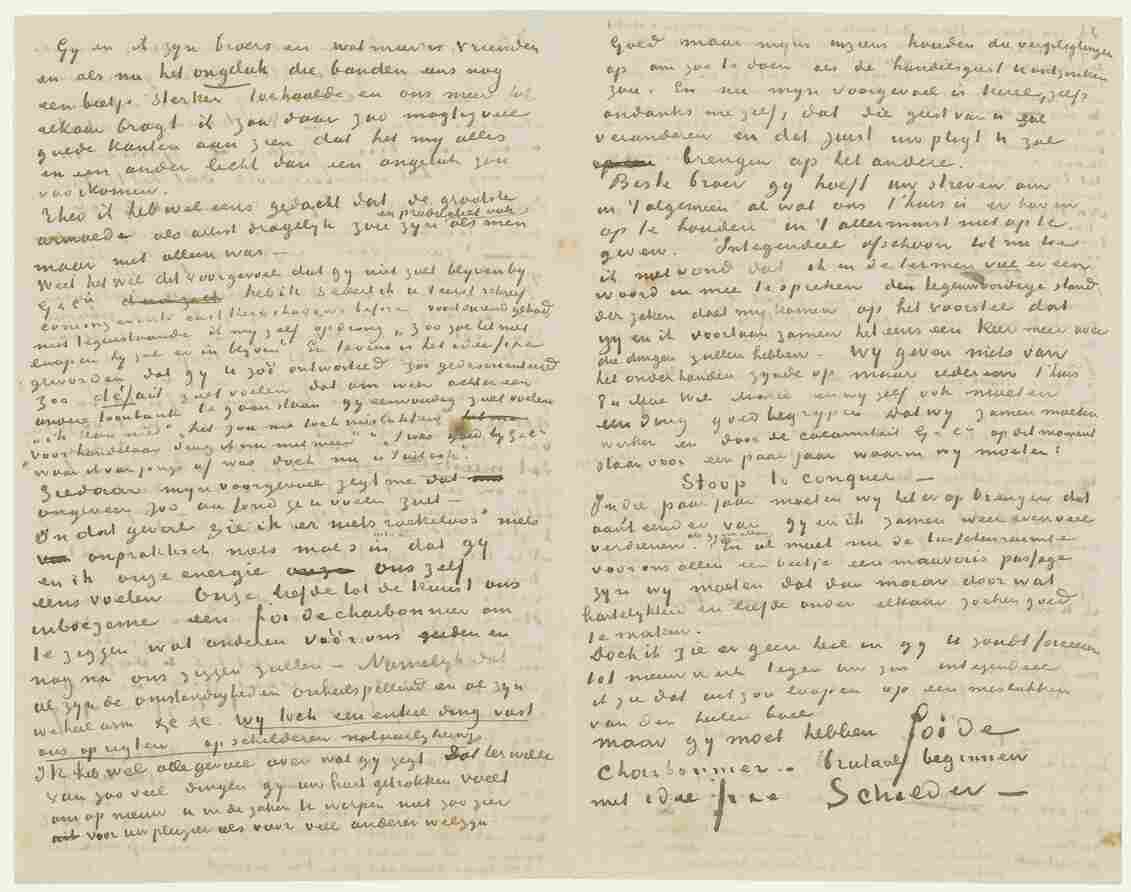 Gy en ik zyn broers en wat meer is vrienden
en als nu het ongeluk die banden ons nog
een beetje sterker toehaalde en ons meer tot
elkaar bragt ik zou daar zoo magtig veel
goede kanten aan zien dat het my alles
in een ander licht dan een ongeluk zou
voorkomen.
Theo ik heb wel eens gedacht dat de grootste
en productief ook
armoede als allerst dragelyk zou zyn als men
maar niet alleen was —
Weet het wel dit voorgevoel dat gy niet zult blyven by
G&Cie heb ik
niettegenstaande ik my zelf opdrong „zoo zal het niet
loopen hy zal er in blyven" En tevens is het idee fixe
geworden dat gy u zoo ontworteld zoo gedesorienteerd
zoo défait zult voelen dat om weer achter een
andere toonbank te gaan staan gy eenvoudig zult voelen
"ik kan niet" het zou me toch mislukken
voor handelaar deug ik nu niet meer" "'t was goed by G&C
waar ik van jongs af was doch nu is 't uit ook".
Ziedaar myn voorgevoel zegt me dat
ongeveer zoo au fond ge u voelen zult —
In dat geval zie ik er niets roekeloos niets
onpraktisch niets mals in dat gy
en ik onze energie ons zelf
eens voelen Onze liefde tot de kunst ons
inboezeme een foi de charbonnier om
te zeggen wat anderen vóór ons zeiden en
nog na ons zeggen zullen — Namelyk dat
al zyn de omstandigheden onheilspellend en al zyn
we heel arm &c &c. wy toch een enkel ding vast
ons op rigten op schilderen natuurlyk
Ik heb wel alle gevoel over wat gy zegt Dat terwille
van zoo veel dingen gy uw hart getrokken voelt
om op nieuw u in de zaken te werpen niet zoo zeer
voor uw plezier als voor veel anderer welzyn
Goed maar myns inziens houden die verpligtingen
op om zoo te doen als de handelsgeest u ontzonken
zou. En nu myn voorgevoel is tevens, zelfs
ondanks me zelf, dat die geest van u zal
veranderen en dat juist uw pligt u zal
brengen op het andere.
Beste broer gy hoeft uw streven om
in 't algemeen al wat ons t'huis is er boven
op te houden in 't allerminst niet op te
geven. Integendeel ofschoon tot nu toe
ik niet vond dat ik in de termen viel er een
woord in mee te spreken den tegenwoordige stand
der zaken doet my komen op het voorstel dat
gy en ik voortaan zamen het eens een keer meer over
die dingen zullen hebben. Wy geven niets van
het onderhanden zynde op maar iedereen t'huis
Pa Moe Wil Marie en my zelf ook moeten
een ding goed begrypen dat wy zamen moeten
werken en door de calamiteit G&Cie op dit moment
staan voor een paar jaar waarin wy moeten:
Stoop to conquer —
In die paar jaar moeten wy het er op brengen dat
aan 't eind er van gy en ik zamen weer evenveel
verdienen. En al moet nu de tusschenruimte
voor ons allen een beetje een mauvais passage
zyn wy moeten dat dan maar door wat
hartelykheid en liefde onder elkaar zoeken goed
te maken.
Doch ik zie er geen heil in gy u zoudt forceeren
tot nieuw werk tegen uw zin integendeel
ik zie dat uit zoo loopen op een mislukken
van den heelen boel
maar gy moet hebben foi de
charbonnier.. brutaal beginnen
met idée fixe Schilder —